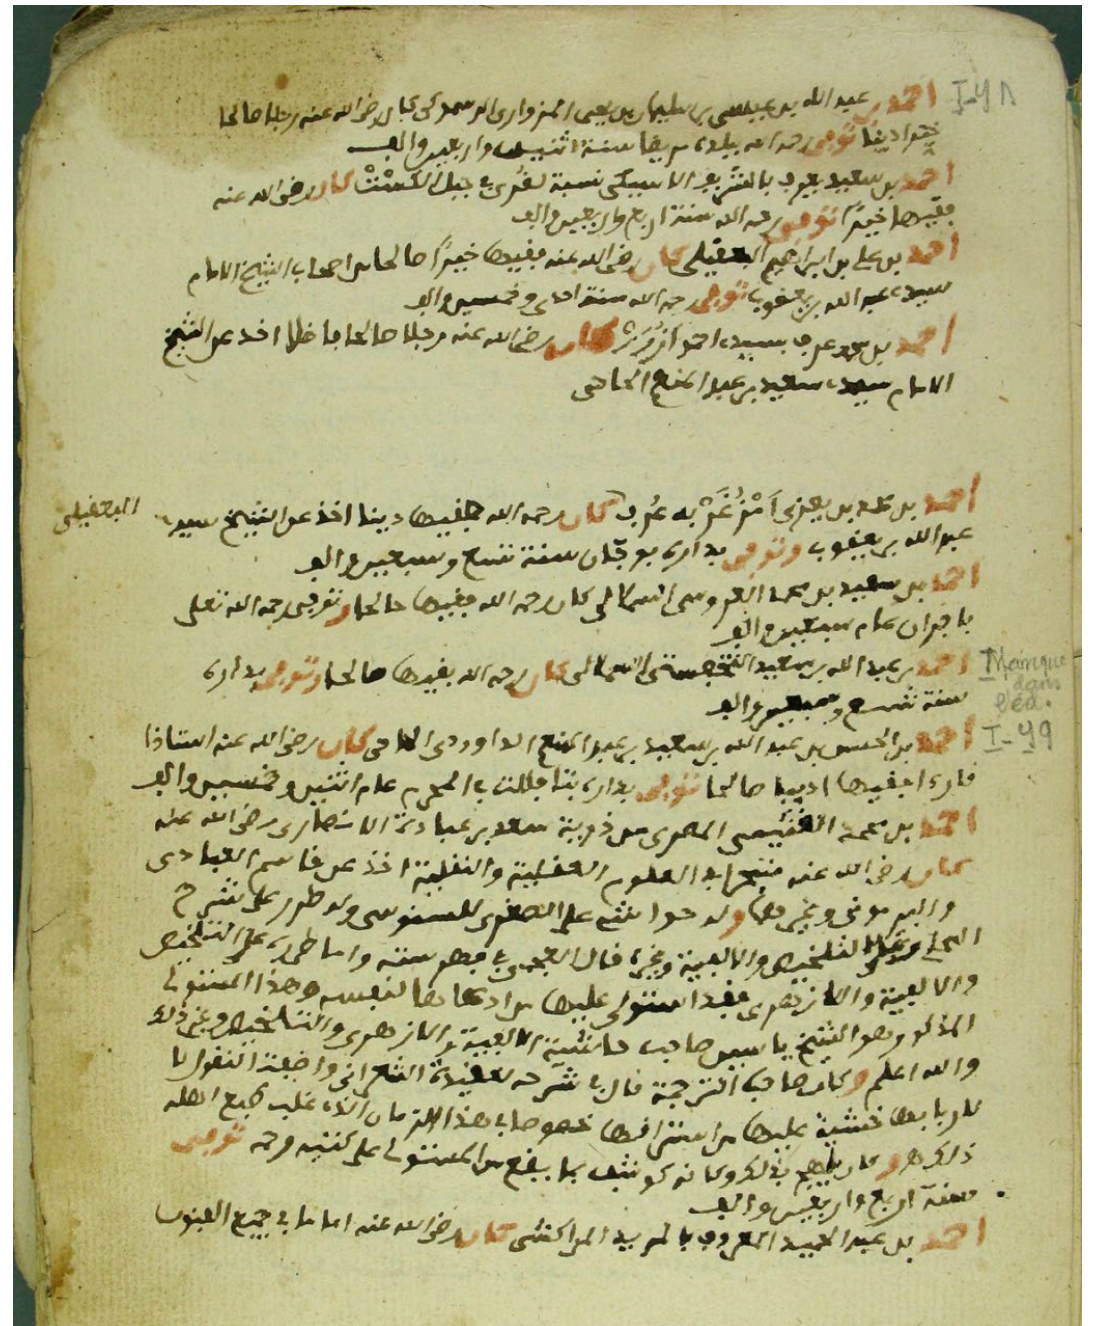 I-٤٨
احمد بن عبد الله بن عيسى بن سليمان بن يعزى المزوارى الرسموكي كان رضي الله عنه رجلا صالحا
خيرا دينا توفي رحمه الله ببلده مريضا سنة اثنين واربعين والف
احمد بن سعيد يعرف بالشريف الاسيكى نسبة لقرى في جبل الكست كان رضي الله عنه
فقيها خيرا توفي رحمه الله سنة اربع واربعين والف
احمد بن على بن ابراهيم البعقيلي كان رضي الله عنه فقيها خيرا صالحا من اصحاب الشيخ الامام
سيدى عبد الله بن يعقوب توفي رحمه الله سنة احدى وخمسين والف
احمد بن محمد عرف بسيدى احمد كان رضي الله عنه رجلا صالحا فاضلا اخذ عن الشيخ
الامام سيدى سعيد بن عبد المنعم الحاحى
احمد بن محمد بن يعزى به عرف كان رحمه الله فقيها دينا اخذ عن الشيخ سيدى
البعقيلي
عبد الله بن يعقوب وتوفي بداره سنة تسع وسبعين والف
احمد بن سعيد بن محمد السملالى كان رحمه الله فقيها صالحا وتوفي رحمه الله تعلى
عام سبعين والف
احمد بن عبد الله بن سعيد السملالى كان رحمه الله فقيها صالحا وتوفي بداره
Manque dans l'éd.
سنة تسع وسبعين والف
I-٤٩
احمد بن الحسن بن عبد الله بن سعيد بن عبد المنعم الداودى الحاحى كان رضي الله عنه استاذا
قارءا فقيها اديبا صالحا توفي بداره في المحرم عام اثنين وخمسين والف
احمد بن محمد الغنيمى المصرى من ذرية سعد بن عبادة الانصارى رضي الله عنه
كان رضي الله عنه متبحرا في العلوم العقلية والنقلية اخذ عن قاسم العبادى
والبرموني وغيرهما وله حواش على الصغرى للسنوسى وله طرر على شرح
التلخيص والالفية وغيره قال في فهرسته واما طرره على التلخيص
والالفية والازهرى فقد استولى عليها من ادعاها لنفسه وهذا المستولى
المذكور هو الشيخ ياسين صاحب حاشية الالفية والازهرى والتلخيص وغير ذلك
والله اعلم وكان صاحب الترجمة قال في شرحه لعقيدة الشعرانى واضفت النقول لا
لاربابها خشية عليها من استراقها خصوصا في هذا الزمان الذى غلب اهله
ذلك وكان كوشف بما يقع من المستولى على كتبه رحمه توفي
سنة اربع واربعين والف
احمد بن عبد الحميد المعروف بالمريد المراكشى كان رضي الله عنه اماما في جميع الفنون